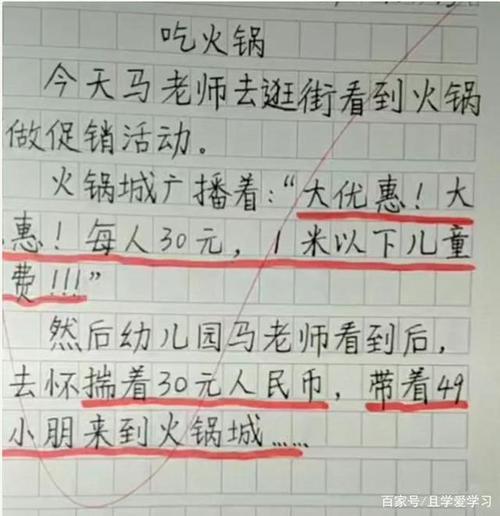 吃火锅
今天马老师去逛街看到火锅
做促销活动。
火锅城广播着:“大优惠!大
惠!每人30元,1米以下儿童
费!!!”
然后幼儿园马老师看到后,
去怀揣着30元人民币,带着49
小朋来到火锅城……
百家号/且学爱学习